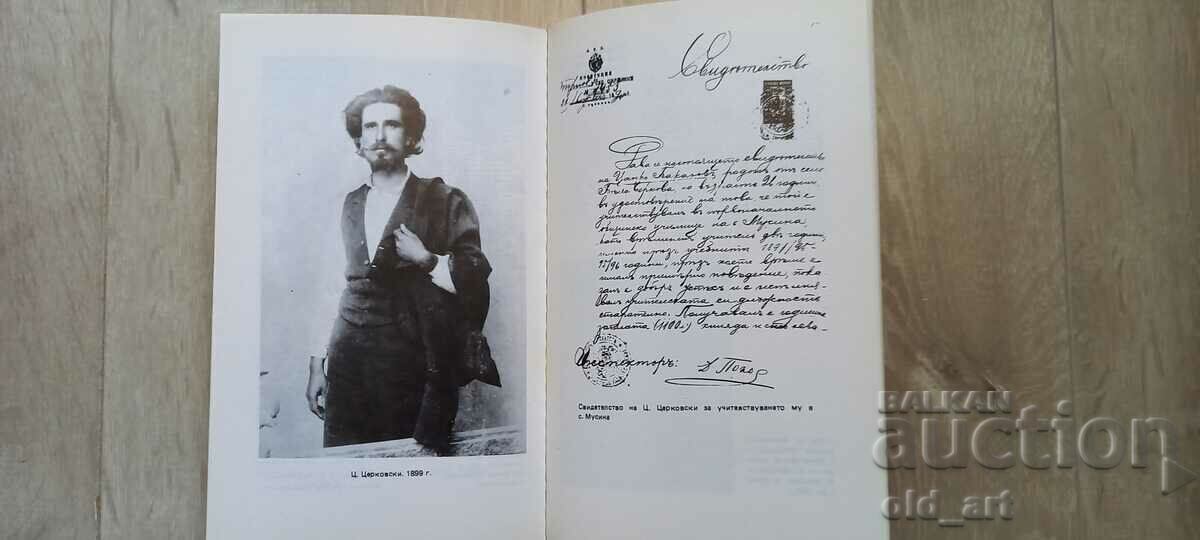 Ц. Церковски. 1899 г.
Свидѣтелство
Дава се настоящето свидѣтелство
на Цанко Бакаловъ, родомъ отъ село
Бѣла Черкова, на възрасть 26 години,
въ удостовѣрение на това че той е
учителствувалъ въ първоначалното
общинско училище на с. Мусина,
като врѣмененъ учителъ двѣ години,
именно прѣзъ учебнитѣ 1894/95-
95/96 години, прѣзъ което врѣме е
ималъ примѣрно поведение, пока-
залъ е добъръ успѣхъ и е испълня-
валъ учителската си длъжность
старателно. Получавалъ е годишна
заплата (1100 л) хиляда и сто лева.
Инспекторъ:
Свидетелство на Ц. Церковски за учителствуването му в
с. Мусина
BALKAN
auction
old_art